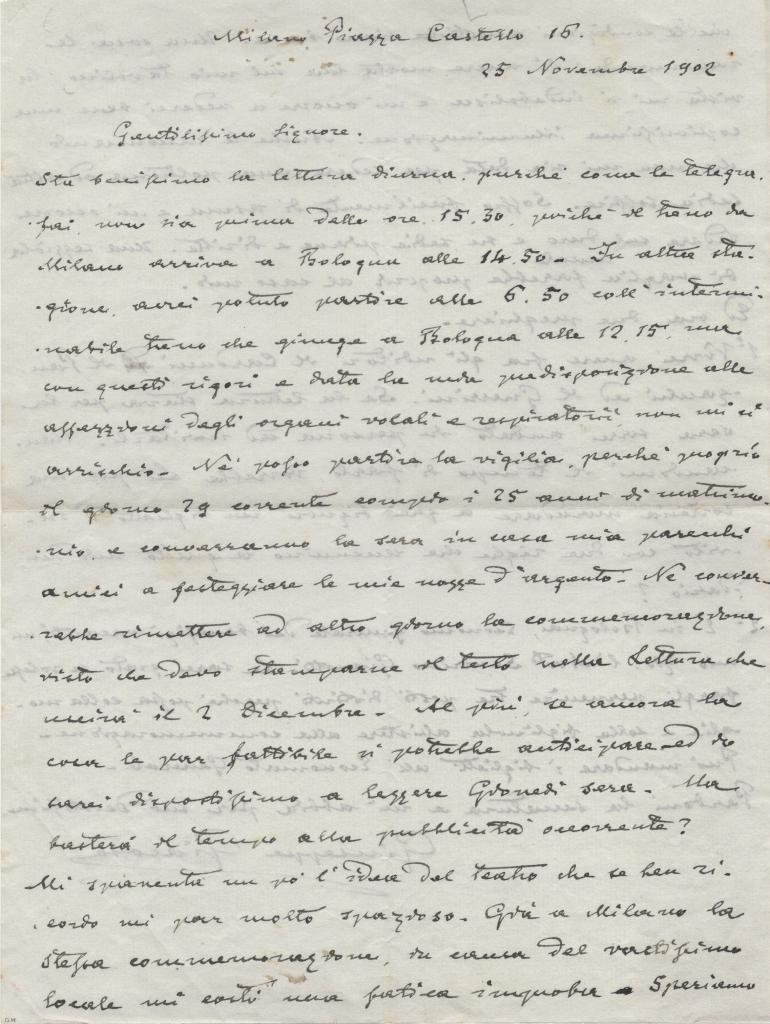 Milano Piazza Castello 16.
25 Novembre 1902
Gentilissimo Signore.
Sta benissimo la lettura diurna, purchè come le telegra-
fai, non sia prima delle ore 15.30, poichè il treno da
Milano arriva a Bologna alle 14.50 - In altra sta-
gione, avrei potuto partire alle 6.50 coll'intermi-
nabile treno che giunge a Bologna alle 12.15, ma
con questi rigori e data la mia predisposizione alle
affezzioni degli organi vocali e respiratorii, non mi ci
arrischio - Nè posso partire la vigilia, perchè proprio
il giorno 29 corrente compio i 25 anni di matrimo-
nio e converranno la sera in casa mia parenti
amici a festeggiare le mie nozze d'argento - Nè conver-
rebbe rimettere ad altro giorno la commemorazione,
visto che devo stamparne il testo nella Lettura che
uscirà il 2 Dicembre - Al più, se ancora la
cosa le par fattibile si potrebbe anticipare ed io
sarei dispostissimo a leggere Giovedì sera - Ma
basterà il tempo alla pubblicità occorrente?
Mi spaventa un pò l'idea del teatro che se ben ri-
cordo mi par molto spazioso - Già a Milano la
stessa commemorazione, in causa del vastissimo
locale mi costò una fatica improba - Speriamo